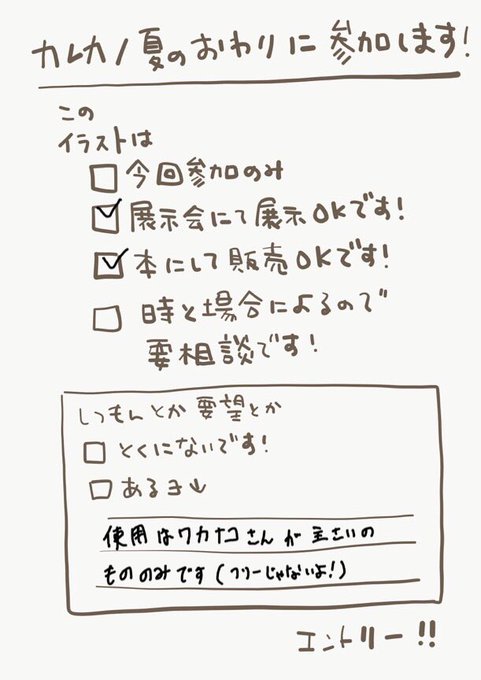 カレカノ夏のおわりに参加します!
この
イラストは
今回参加のみ
展示会にて展示OKです!
本にして販売OKです!
時と場合によるので
要相談です!
しつもんとか要望とか
とくにないです!
あるよ↓
使用はワカナコさんが主さいの
もののみです(フリーじゃないよ!)
エントリー!!